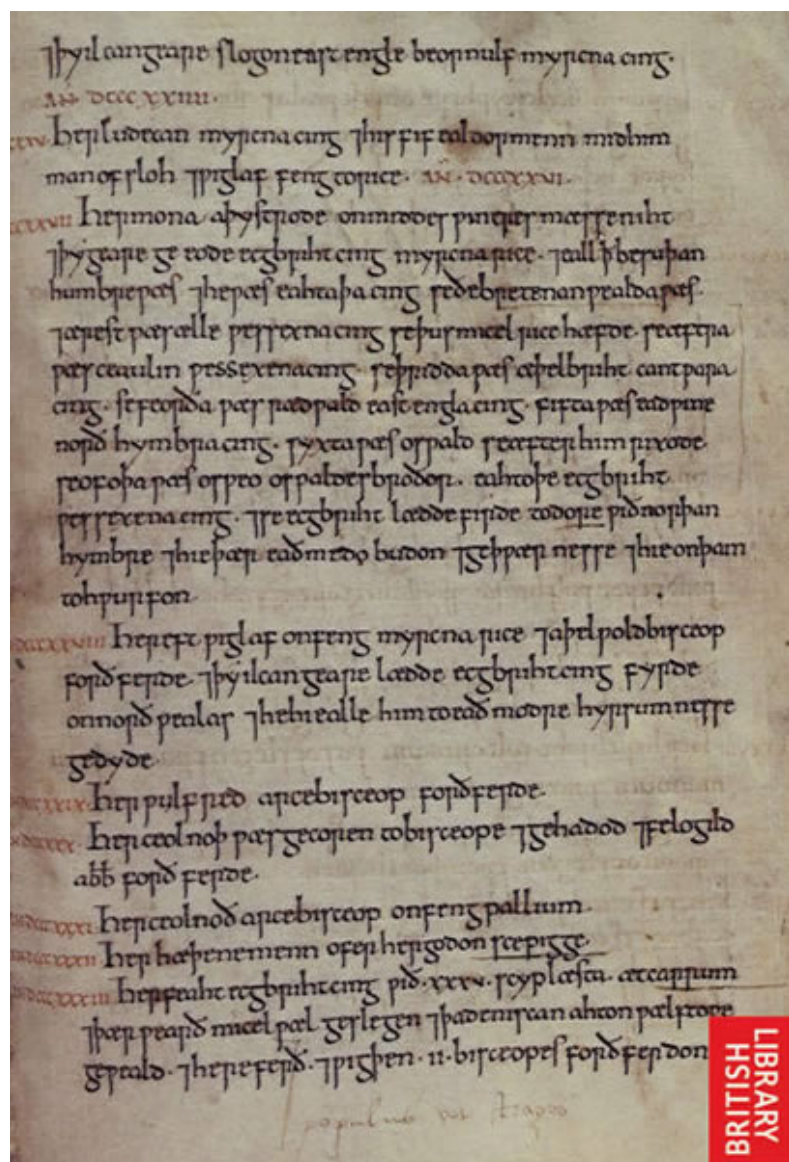 ⁊ þy ilcan geare slogon east engle beornulf myrcna cing.
AN̄. DCCC XXIIII.
Her ludecan myrcna cing ⁊ his fif ealdormenn mid him
man ofsloh ⁊ ƿiglaf feng to rice. AN̄. DCCCXXVI.
Her mona aþystrode on middes ƿintres mæsseniht
⁊ þy geare ge eode ecgbriht cing myrcna rice. ⁊ eall ꝥ be suþan
humbre ƿæs ⁊ he ƿæs eahtaþa cing se ðe bretenanƿealda ƿæs.
⁊ ærest ƿæs ælle ƿessexna cing se þus micel rice hæfde. se æftera
ƿæs ceaulin ƿessexena cing. se þridda ƿæs æþelbriht cantƿara
cing. se feorða ƿæs rædƿald east engla cing. fifta ƿæs eadƿine
norð hymbra cing. syxta ƿæs osƿald se æfter him rixode.
seofoþa ƿæs osƿeo osƿaldes broðor. eahtoþe ecgbriht
ƿessexena cing. ⁊ se ecgbriht lædde firde to dore ƿið norþan
hymbre ⁊ hie þær eadmedo budon ⁊ geþƿærnesse ⁊ hie on þam
tohƿurfon.
Her eft ƿiglaf onfeng myrcna rice ⁊ aþelƿold bisceop
forðferde. ⁊ þy ilcan geare lædde ecgbriht cing fyrde
on norðƿealas ⁊ he hi ealle him to eaðmodre hyrsumnesse
gedyde.
Her ƿulfred arcebisceop forðferde.
Her ceolnoþ ƿæs gecoren to bisceope ⁊ gehadod ⁊ felogild
abb̄ forð ferde.
Her ceolnoð arcebisceop onfeng pallium.
Her hæþene menn oferhergodon sceƿigge.
Her feaht ecgbriht cing ƿið .xxxv. scyplæsta. æt carrum
⁊ þær ƿearð micel ƿæl geslegen ⁊ þa deniscan ahton ƿælstoƿe
geƿeald. ⁊ hereferð. ⁊ ƿigþen .ii. bisceopes forðferdon
BRITISH
LIBRARY